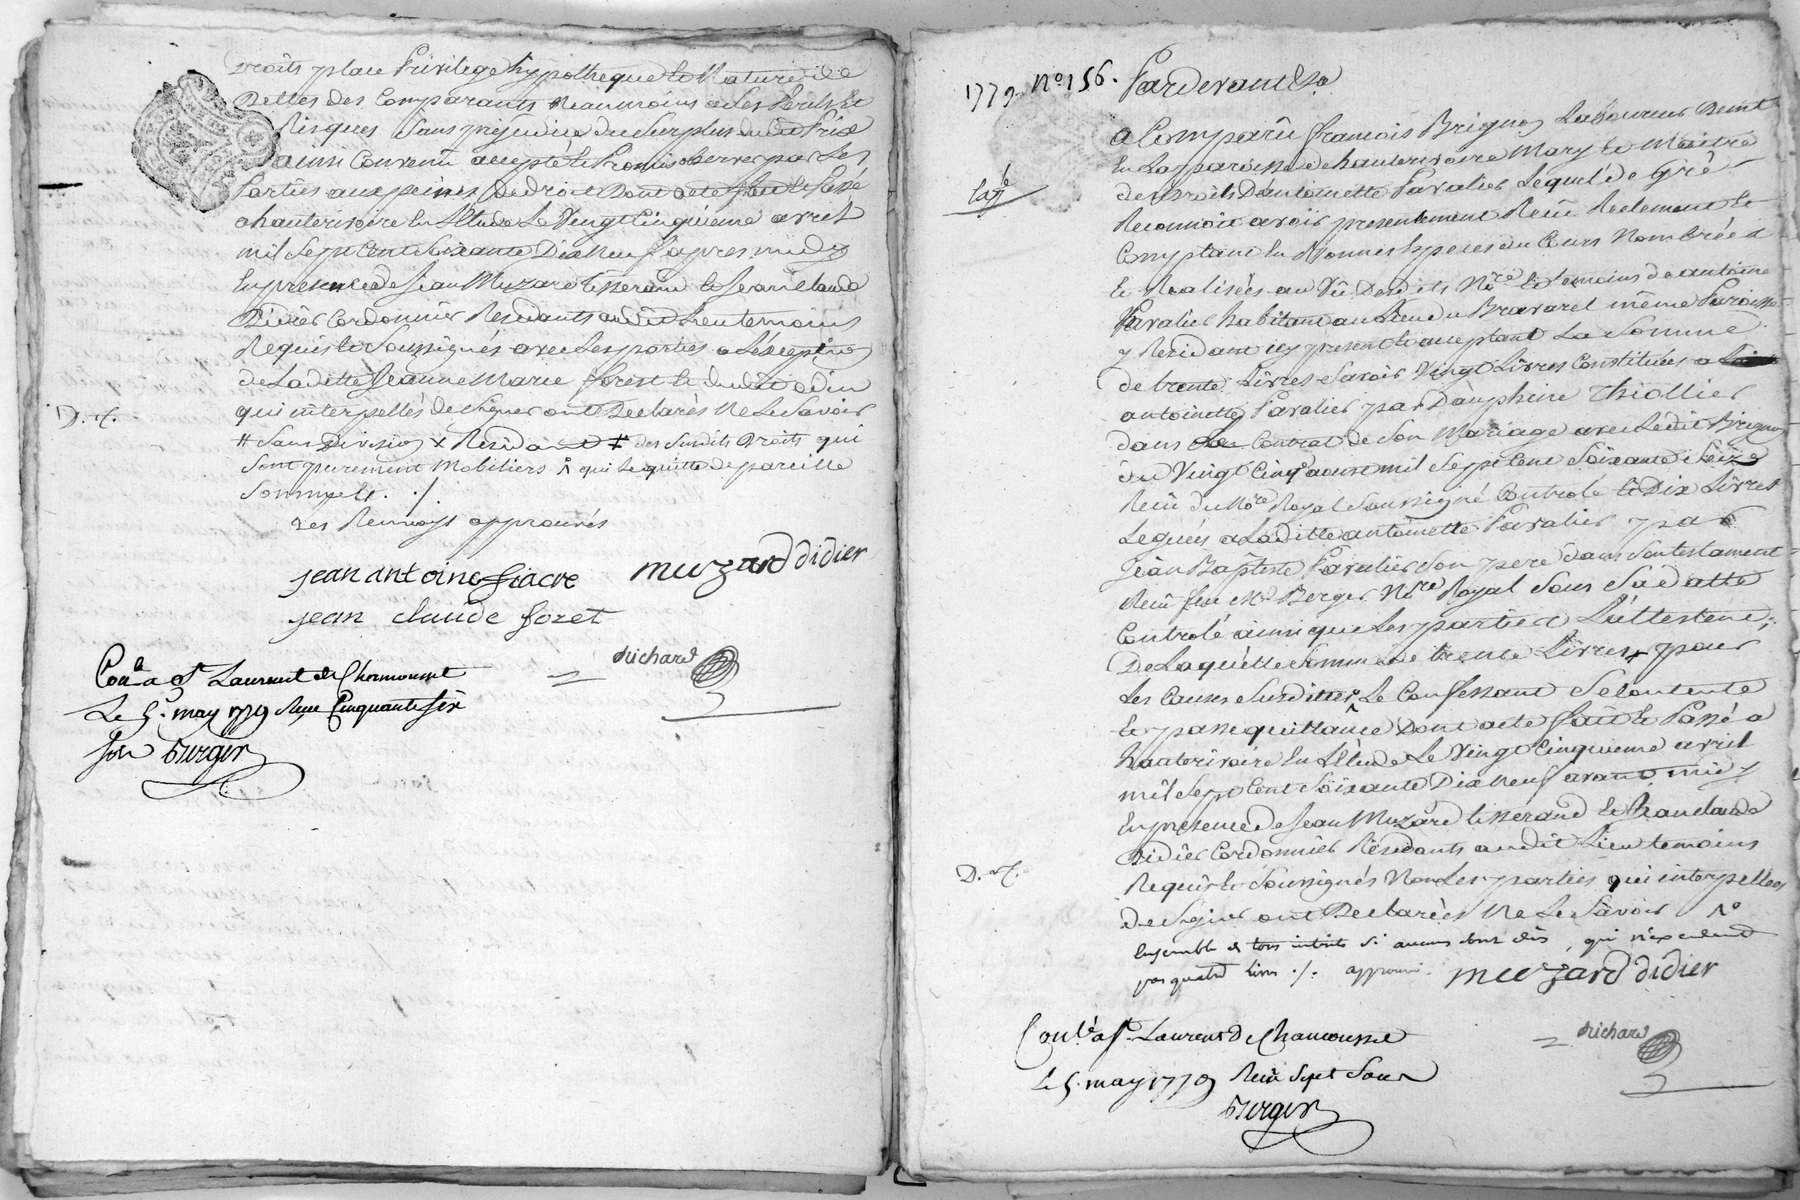 Droits place Privilege hypotheque Et Nature d'ic
Belles des Comparants Neanmoins a Ses Perils Et
Risques Sans prejudice du Surplus dudit Prix
ainsi Convenu accepté Et Promis observer par Les
Parties aux peines De droit Dont acte fait Et Passé
a hauterivoire En L'Etude Le Vingt Cinquieme avril
mil Sept Cent Soixante Dix Neuf apres midy
En presence de Jean Muzard tisserand Et Jean Claude
Didier Cordonnier Residants audit Lieu temoins
Requis Et Soussignés avec Les parties a L'exception
de Laditte Jeanne Marie forest Et dudit odin
qui interpellés de Signer ont Declarés Ne Le Savoir
D. R.
# Sans Division x Residant # des Susdits Droits qui
Sont purement Mobiliers & qui Se quitte de pareille
Somme Et ./.
Les Renvoys approuvés
jean antoine fiacre muzard didier
jean claude foret
Richard
Con.le a St Laurent de Chamousset
Le 5. may 1779 Reçu Cinquante Six
sou Burgin
1779. No. 156. Pardevant &a
a Comparû francois Brignon Laboureur Demt
En La paroisse de hauterivoire Mary Et Maitre
des Droits D'antoinette Pavalier Lequel de Gré
Exp.é
Reconnoit avoir presentement Reçû Reelement Et
Comptant En Bonnes Especes du Cours Nombrées
Et Realisées au Vû Desdits No.re Et temoins de antoine
Pavalier habitant au Lieu du Bravarel même Paroisse
y Residant icy present Et acceptant La Somme
de trente Livres Savoir Vingt Livres Constituées a
antoinette Pavalier par Dauphine Thiollier
dans Le Contrat de Son Mariage avec Ledit Brignon
du Vingt Cinq aoust mil Sept Cent Soixante Seize
Reçû du No.re Royal Soussigné Controlé Et Dix Livres
Leguées a Laditte antoinette Pavalier par
Jean Baptiste Pavalier Son pere dans Son testament
Reçû feu Me Berger No.re Royal Sous Sa datte
Controlé ainsi que Les parties L'attestent;
De Laquelle Somme de trente Livres pour
Les Causes Susdittes, Le Confessant Se Contente
Et passe quittance Dont acte fait Et Passé a
hauterivoire En L'Etude Le Vingt Cinquieme avril
mil Sept Cent Soixante Dix Neuf avant midy
En presence de Jean Muzard tisserand Et Jean Claude
Didier Cordonnier Residants audit Lieu temoins
D. R.
Requis Et Soussignés Non Les parties qui interpellés
de Signer ont Declarées Ne Le Savoir
Ensemble de tous interets Si aucuns Sont dûs, qui n'excedent
pas quatre Livres ./. approuvé. muzard didier
Richard
Con.lé a St Laurent De Chamousset
Le 5. may 1779 Reçu Sept Sous
Burgin